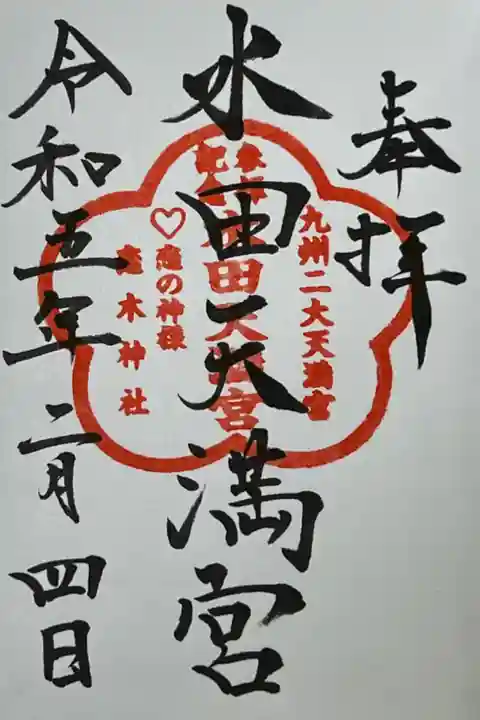 奉拝
水田天満宮
令和五年二月四日
九州二大天満宮
水田天満宮
♡恋の神様
恋木神社